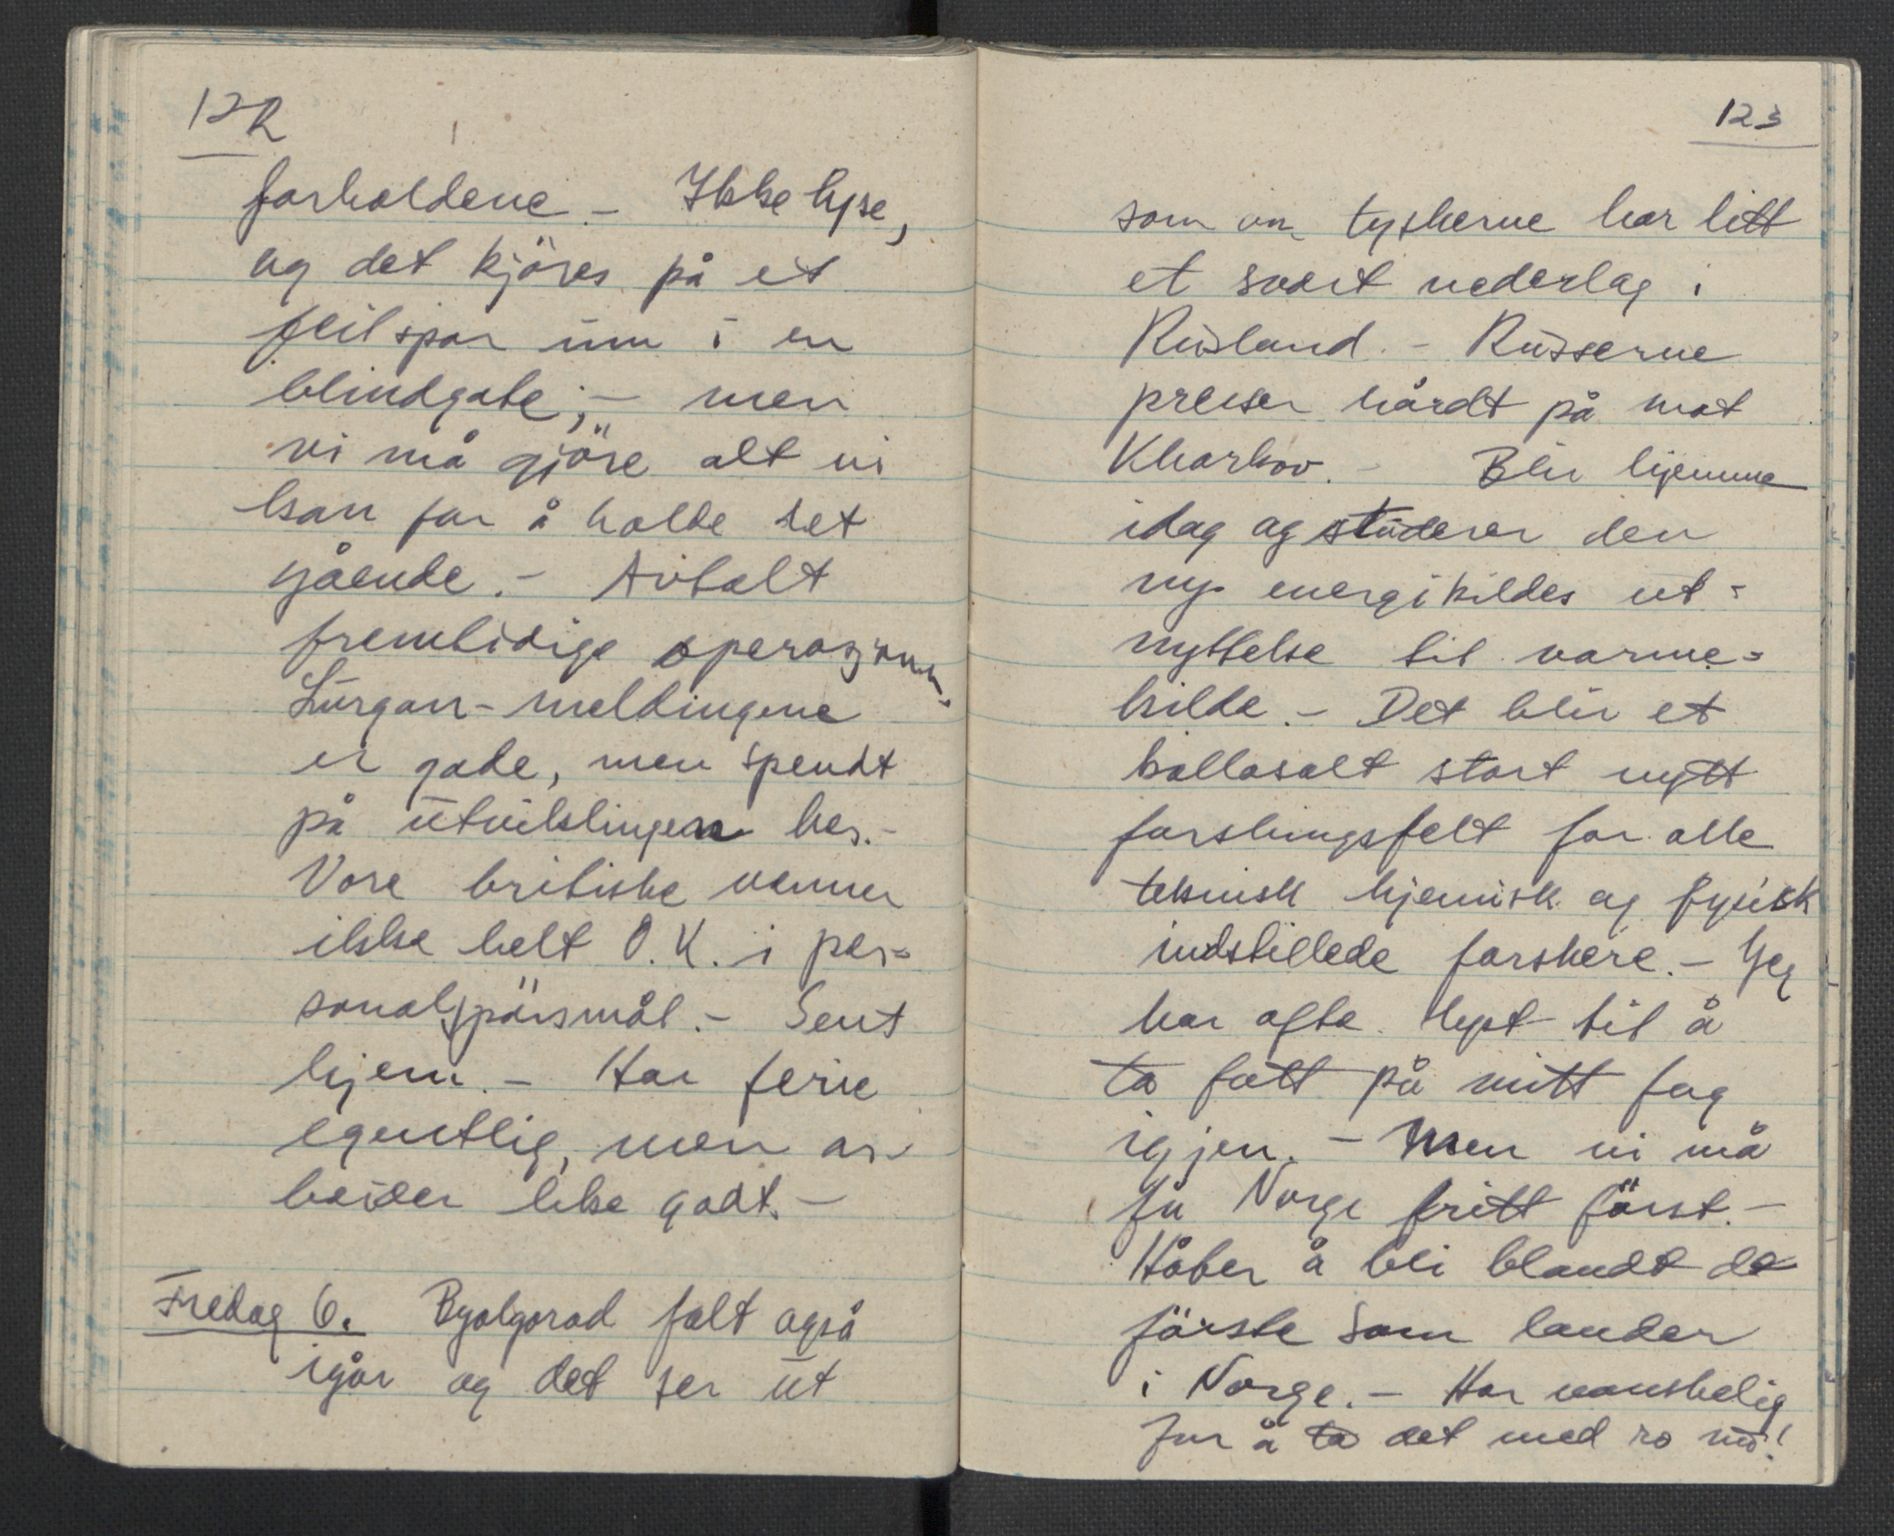 122
forholdene. - Ikke lyse,
og det kjöres på et
feilspor inn i en
blindgate; - men
vi må gjöre alt vi
kan for å holde det
gående. - Avtalt
fremtidige operasjoner.
Lurgan-meldingene
er gode, men spendt
på utviklingen her. -
Vore britiske venner
ikke helt O.K. i per=
sonalspörsmål. - Sent
hjem. - Har ferie
egentlig, men ar-
beider like godt. -
Fredag 6. Byelgorod falt også
igår og det ser ut
123
som om tyskerne har litt
et svært nederlag i
Rusland. - Russerne
presser hårdt på mot
Kharkov. - Blir hjemme
idag og studerer den
nye energikildes ut=
nyttelse til varme=
kilde. - Det blir et
kollosalt stort nytt
forskningsfelt for alle
teknisk kjemisk og fysisk
indstillede forskere. - Jeg
har ofte lyst til å
ta fatt på mitt fag
igjen. - Men vi må
få Norge fritt först. -
Håber å bli blandt de
förste som lander
i Norge. - Har vanskelig
for å ta det med ro nu!